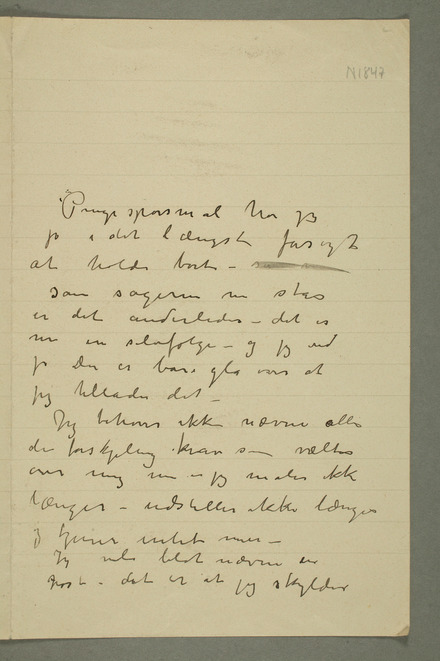 N1847
Pengespørsmål har jeg
jo i det længste forsøgt
at holde borte –
som sagerne nu står
er det anderledes – det er
nu en selvfølge – og jeg ved
jo De er bare gla over at
jeg tillader det –
Jeg behøver ikke nævne alle
de forskjelig krav som væltes
over mig nu – jeg maler ikke
længer – udstiller ikke længer
jeg tjener intet mer –
Jeg vil blot nævne en
post – det er at jeg skylder